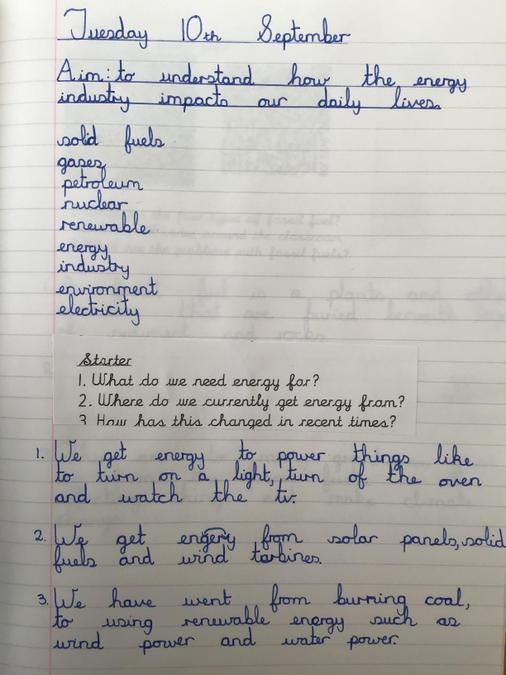 Tuesday 10th September
Aim: to understand how the energy
industry impacts our daily lives.
solid fuels
gases
petroleum
nuclear
renewable
energy
industry
environment
electricity
Starter
1. What do we need energy for?
2. Where do we currently get energy from?
3. How has this changed in recent times?
1. We get energy to power things like
to turn on a light, turn of the oven
and watch the tv.
2. We get engery from solar panels, solid
fuels and wind tarbines.
3. We have went from burning coal,
to using renewable energy such as
wind power and water power.